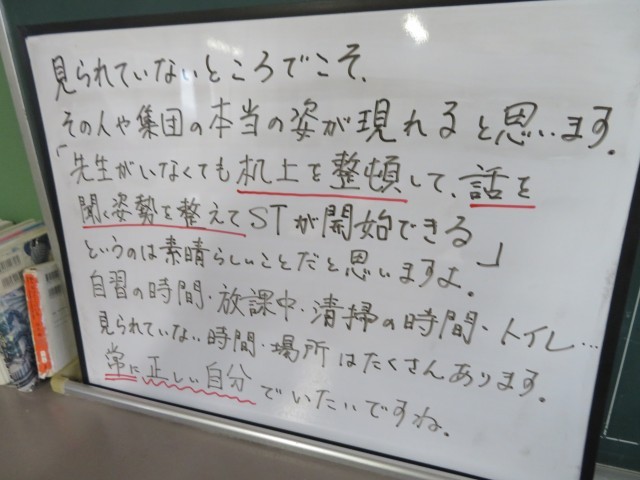 見られていないところでこそ、
その人や集団の本当の姿が現れると思います。
「先生がいなくても机上を整頓して、話を
聞く姿勢を整えてSTが開始できる」
というのは素晴らしいことだと思いますよ。
自習の時間・放課中・清掃の時間・トイレ…
見られていない時間・場所はたくさんあります。
常に正しい自分でいたいですね。